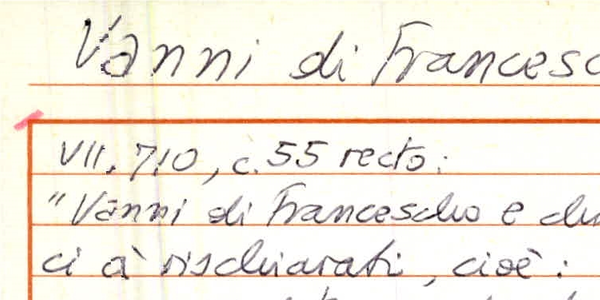 Vanni di Francesc
VII. 710, c. 55 recto:
"Vanni di Francescho e
ci à rischiarati, cioè: